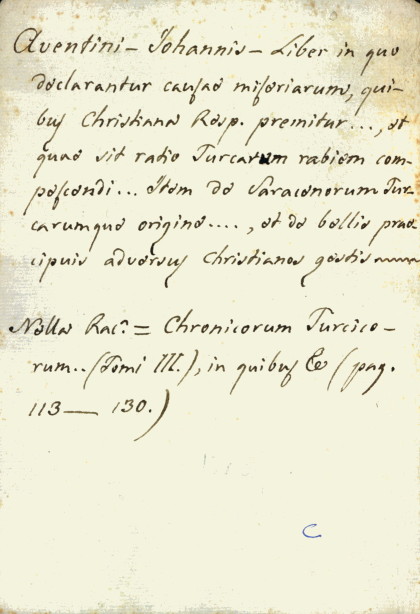 Aventini - Johannis - Liber in quo
declarantur causae miseriarum, qui-
bus Christiana Resp. premitur..., et
quae sit ratio Turcarum rabiem com-
pescendi... Item de Saracenorum Tur-
carumque origine...., et de bellis prae
cipuis adversus Christianos gestis
Nella Rac.ª = Chronicorum Turcico-
rum.. (Tomi III.), in quibus &c (pag.
113 — 130.)
C